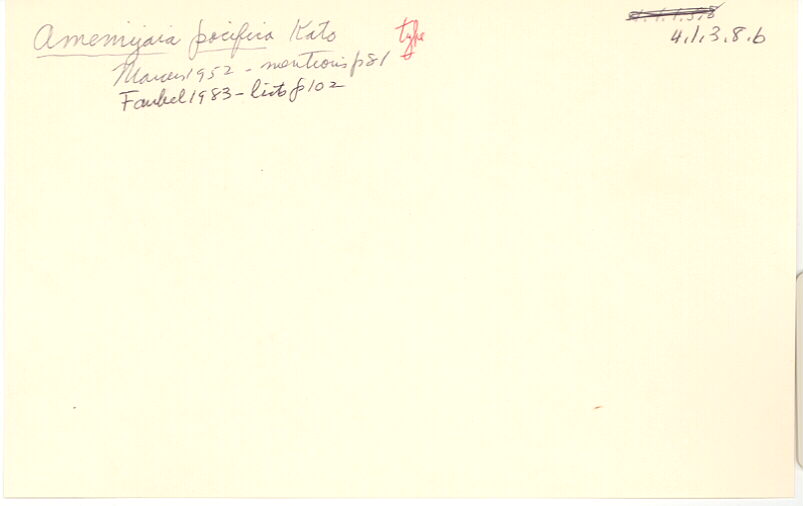 Amemiyaia pacifica Kato type
4.1.3.8.6
Marcus 1952 - mentions p81
Faubel 1983 - lists p102